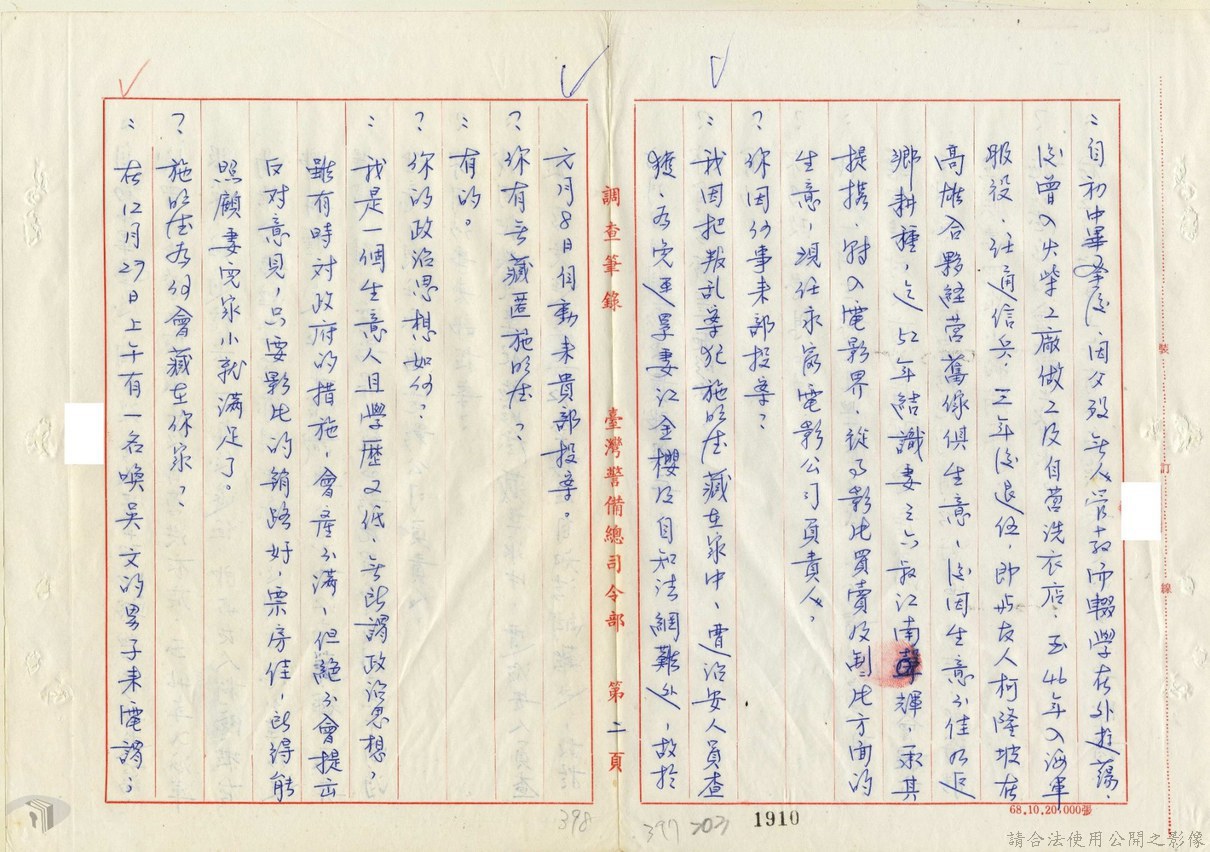 ：自初中畢業後，因父歿無人管教而輟學在外遊蕩，
後曾入火柴工廠做工及自營洗衣店，至46年入海軍
服役，任通信兵，三年後退伍，即與友人柯隆坡在
高雄合夥經營舊傢俱生意，後因生意不佳乃返
鄉耕種，迄52年結識妻之六叔江南輝，承其
提携，躋入電影界，從事影片買賣及制片方面的
生意，現任永家電影公司負責人。
？你因何事來部投案？
：我因把叛乱案犯施明德藏在家中，遭治安人員查
獲，為免連累妻江金櫻及自知法網難逃，故於
元月8日自動來貴部投案。
？你有無藏匿施明德？
：有的。
？你的政治思想如何？
：我是一個生意人且學歷又低，無所謂政治思想，
雖有時對政府的措施，會產不滿，但絕不會提出
反对意見，只要影片的銷路好，票房佳，所得能
照顧妻兒家小就滿足了。
？施明德為何會藏在你家？
：在12月27日上午有一名喚吳文的男子來電謂：
調查筆錄
臺灣警備總司令部
第二頁
裝
訂
線
68.10.20,000張
1910
397
203
398
請合法使用公開之影像